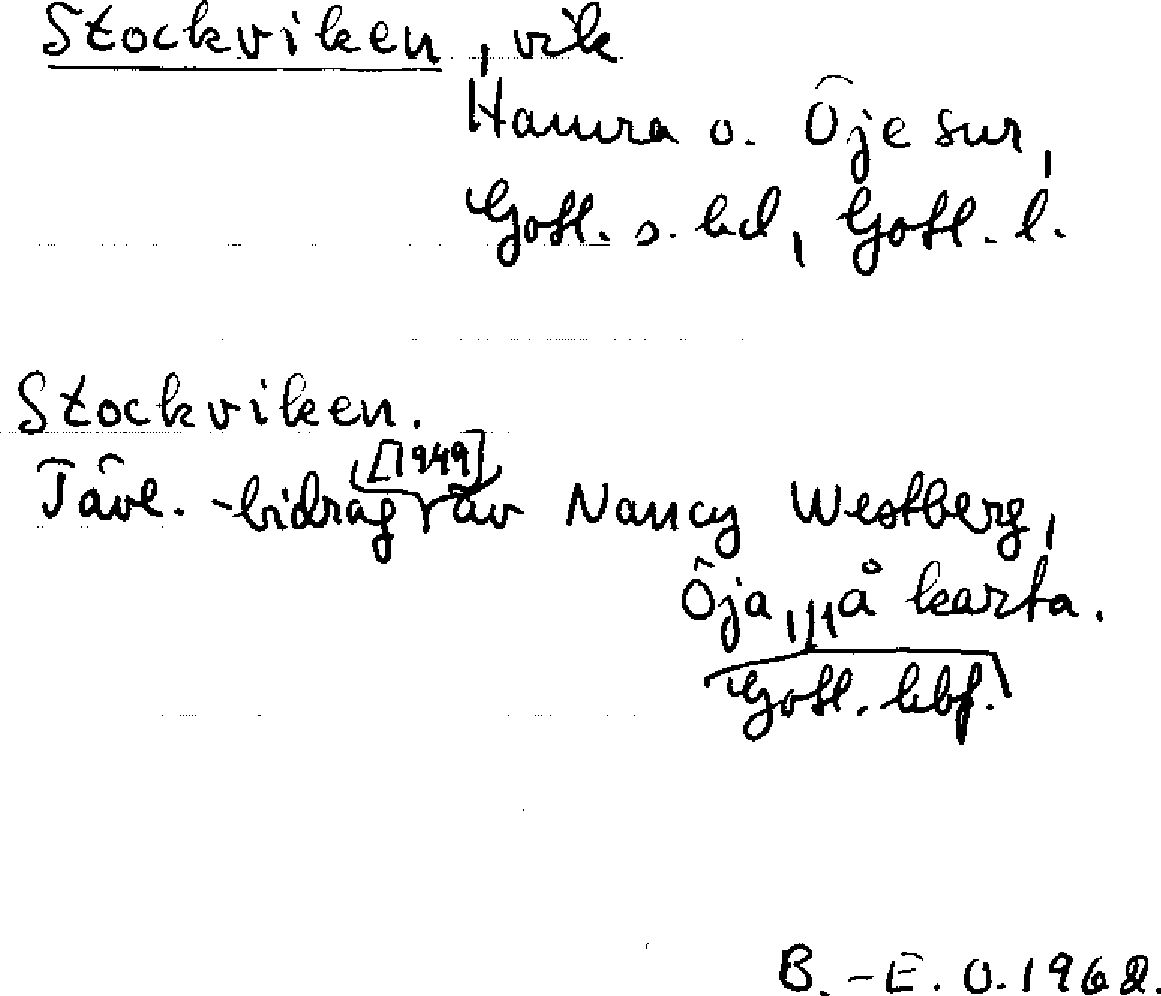 Stockviken, vik
Hamra o. Öje snr,
Gotl. s. hd, Gotl. l.
Stockviken.
[1949]
Tävl.-bidrag av Nancy Westberg,
Öja, å karta.
Gotl. hbf.
B.-E. O. 1962.